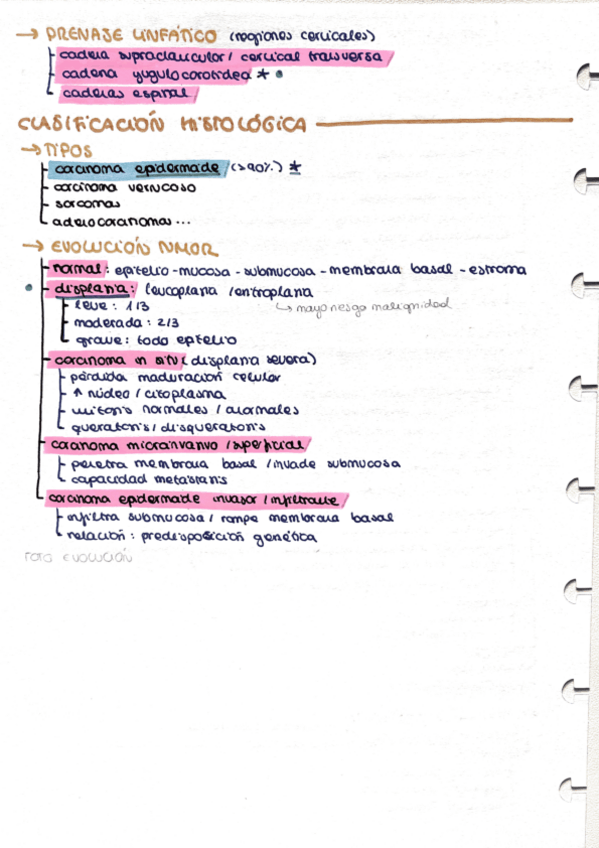 → DRENAJE LINFÁTICO (regiones cervicales)
cadena supraclavicular / cervical transversa
cadena yugulocarotidea * •
cadenas espinal
CLASIFICACIÓN HISTOLÓGICA
→ TIPOS
carcinoma epidermoide (>90%) *
carcinoma verrucoso
sarcomas
adenocarcinomas ...
→ EVOLUCIÓN TUMOR
normal: epitelio - mucosa - submucosa - membrana basal - estroma
• displasia: leucoplasia / eritroplasia
leve: 1/3 ↳ mayor riesgo malignidad
moderada: 2/3
grave: todo epitelio
carcinoma in situ (displasia severa)
pérdida maduración celular
↑ núcleo / citoplasma
mitosis normales / anormales
queratosis / disqueratosis
carcinoma microinvasivo / superficial
penetra membrana basal / invade submucosa
capacidad metástasis
carcinoma epidermoide invasor / infiltrante
infiltra submucosa / rompe membrana basal
relación: predisposición genética
FOTO EVOLUCIÓN